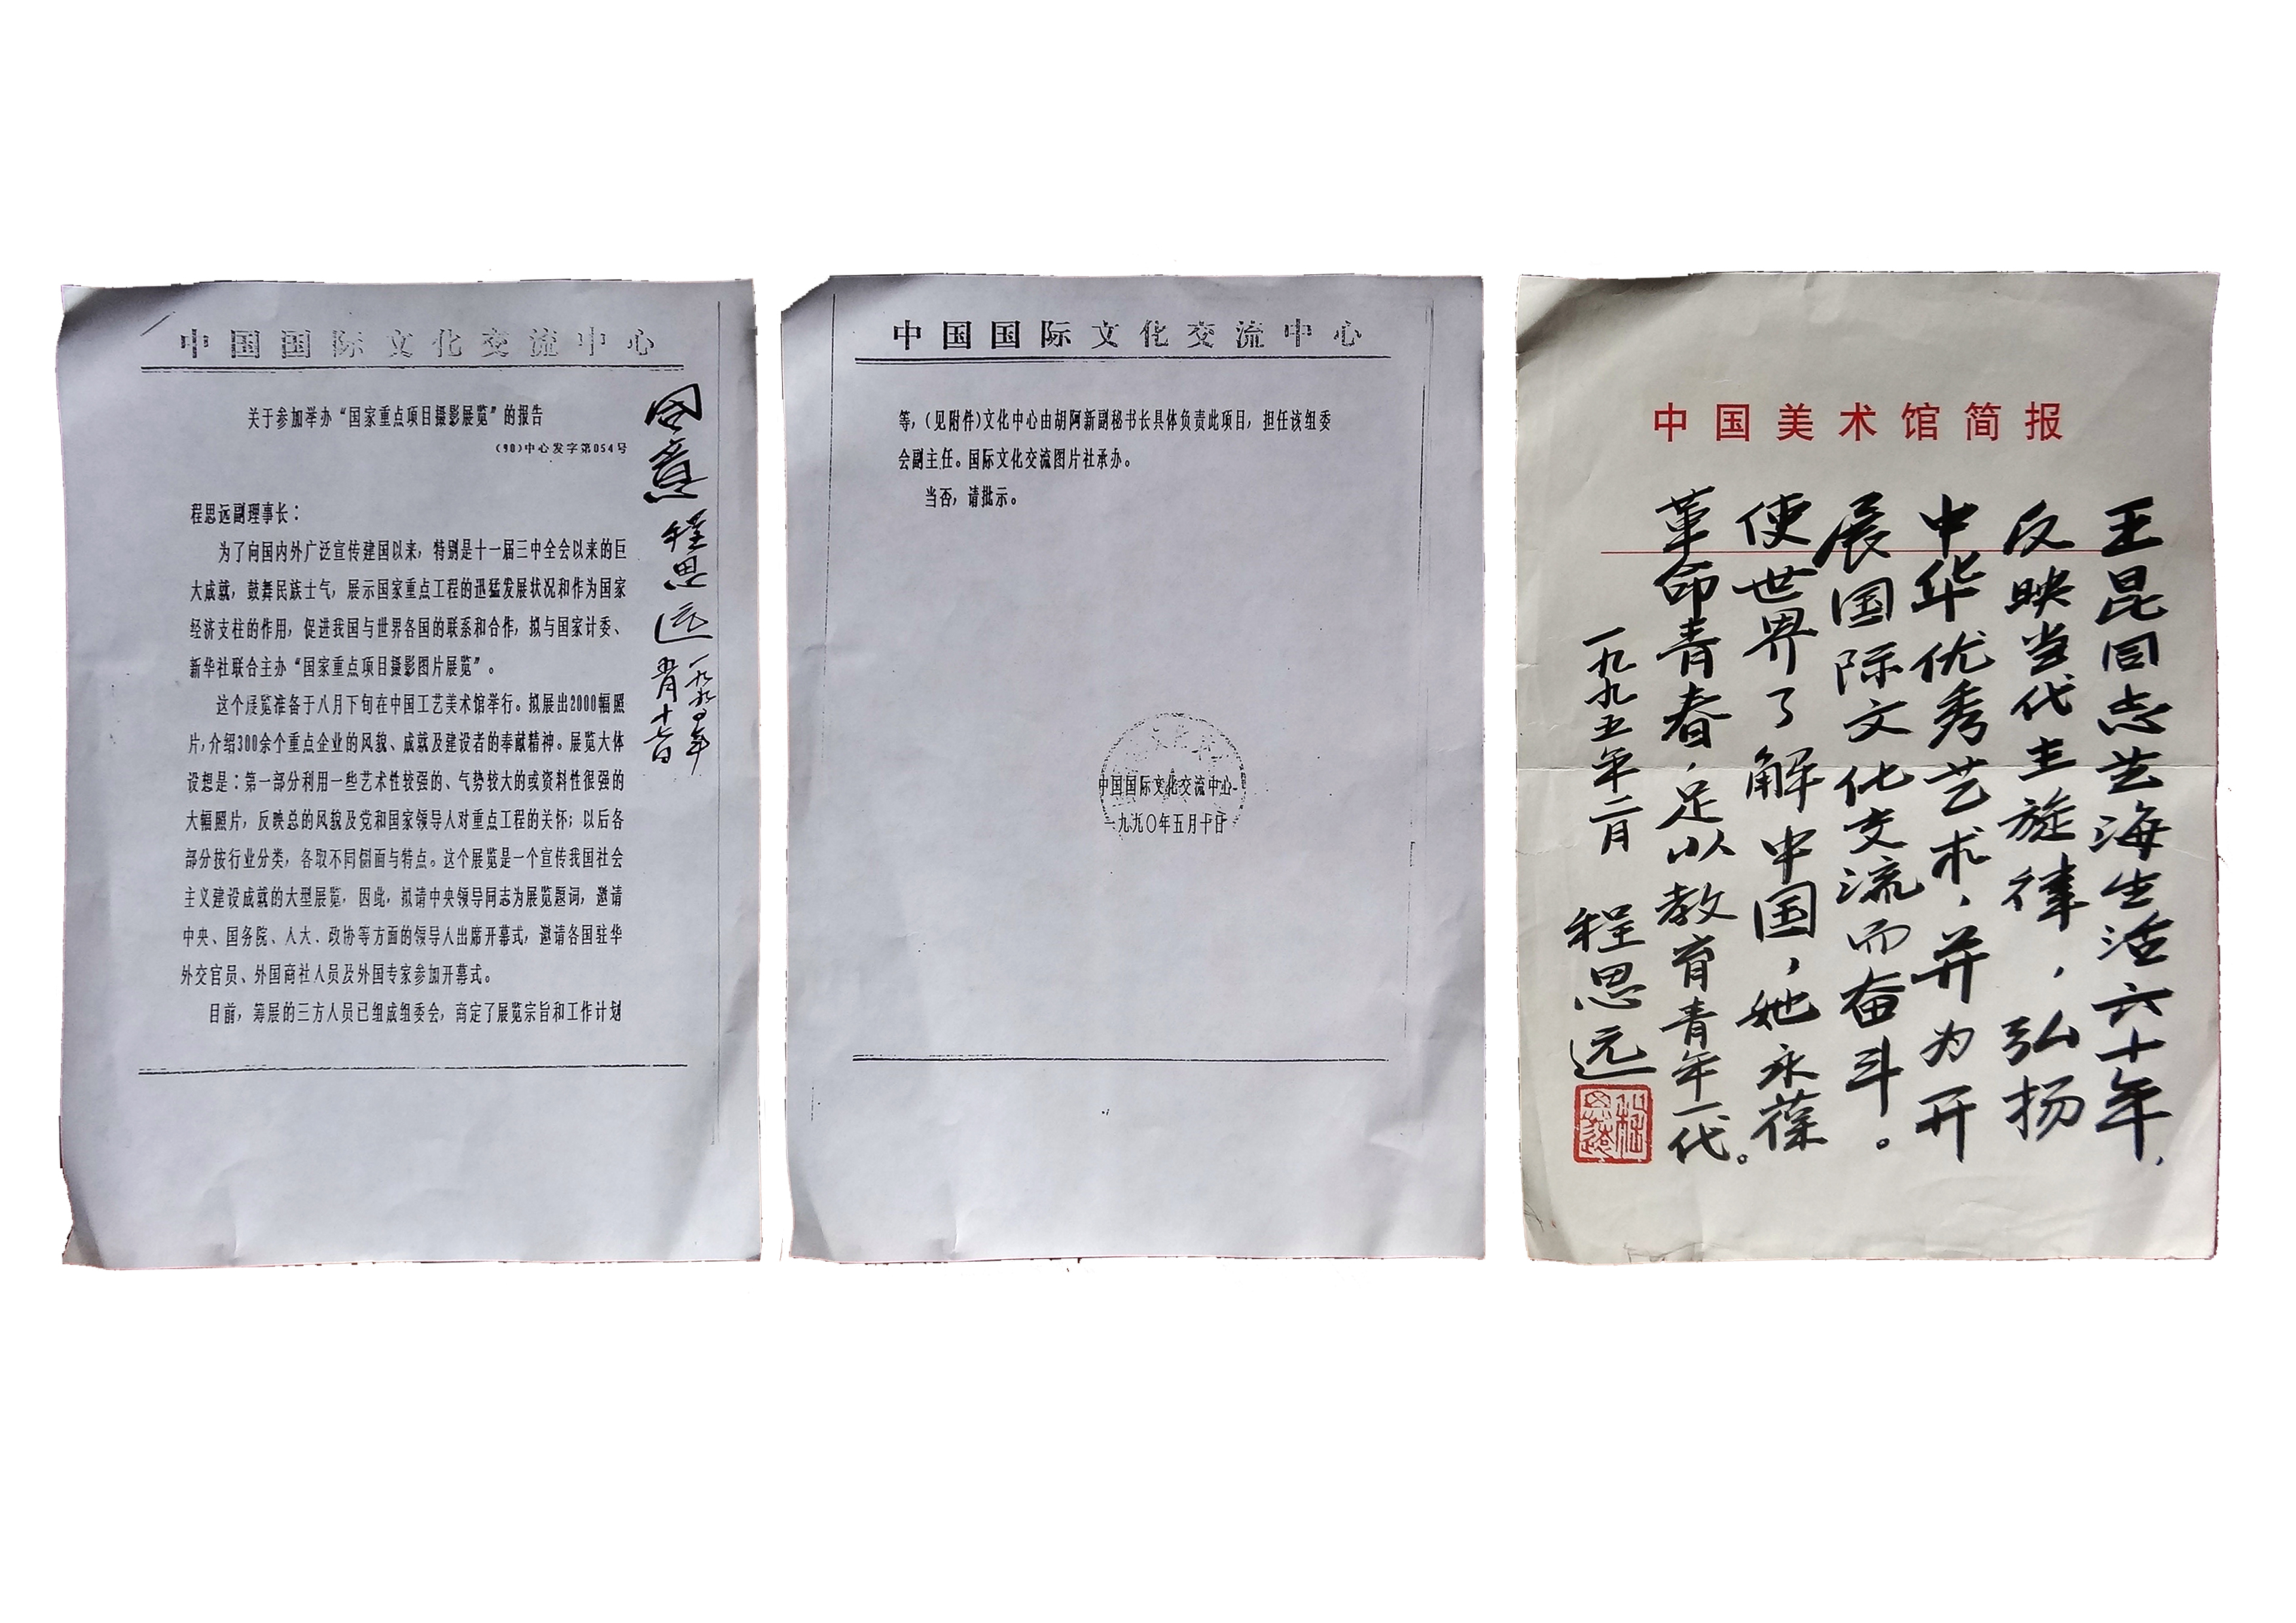 中国国际文化交流中心
关于参加举办“国家重点项目摄影展览”的报告
(90)中心发字第054号
程思远副理事长：
为了向国内外广泛宣传建国以来，特别是十一届三中全会以来的巨
大成就，鼓舞民族士气，展示国家重点工程的迅猛发展状况和作为国家
经济支柱的作用，促进我国与世界各国的联系和合作，拟与国家计委、
新华社联合主办“国家重点项目摄影图片展览”。
这个展览准备于八月下旬在中国工艺美术馆举行。拟展出2000幅照
片，介绍300余个重点企业的风貌、成就及建设者的奉献精神。展览大体
设想是：第一部分利用一些艺术性较强的、气势较大的或资料性很强的
大幅照片，反映总的风貌及党和国家领导人对重点工程的关怀；以后各
部分按行业分类，各取不同侧面与特点。这个展览是一个宣传我国社会
主义建设成就的大型展览，因此，拟请中央领导同志为展览题词，邀请
中央、国务院、人大、政协等方面的领导人出席开幕式，邀请各国驻华
外交官员、外国商社人员及外国专家参加开幕式。
目前，筹展的三方人员已组成组委会，商定了展览宗旨和工作计划
同意 程思远
一九九〇年
五月十七日
中国国际文化交流中心
等，(见附件)文化中心由胡阿新副秘书长具体负责此项目，担任该组委
会副主任。国际文化交流图片社承办。
当否，请批示。
中国国际文化交流中心
一九九〇年五月十日
中国美术馆简报
王昆同志艺海生活六十年，
反映当代主旋律，弘扬
中华优秀艺术，并为开
展国际文化交流而奋斗。
使世界了解中国，她永葆
革命青春，足以教育青年一代。
一九九五年二月 程思远
程思远